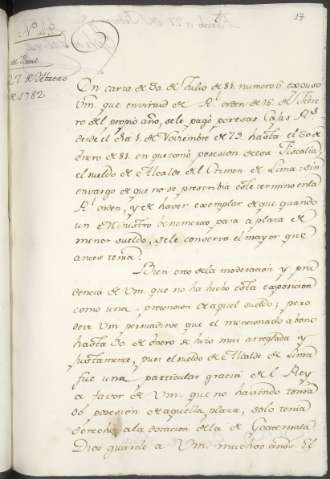 17
27 de Febrero
de 1782
En carta de 30 de Julio de 81 numero 6 expuso
Vm. que en virtud de Rl. orden de 16 de Febre
ro del propio año, se le pagó por esas Cajas Rs.
desde el dia 1 de Noviembre de 79 hasta el 30 de
Enero de 81 en que tomó posesion de esa Fiscalia
el sueldo de Alcalde del Crimen de Lima sin
embargo de que no se prescribia este termino en la
Rl. orden, y de haver exemplar de que quando
un Ministro benemerito pasa a plaza de
menor sueldo, se le conserva el mayor que
antes tenia.
Bien creo de la moderacion y pru
dencia de Vm. que no ha hecho esta exposicion
como una pretension de aquel sueldo; pero
deve Vm. persuadirse que el mencionado abono
hasta 30 de Enero se hizo mui arreglada y
justamente, pues el sueldo de Alcalde de Lima
fue una particular gracia de el Rey
a favor de Vm. que no haviendo toma
do posesion de aquella plaza, solo tenia
derecho a la dotacion de la de Guatemala
Dios guarde a Vm. muchos años. El